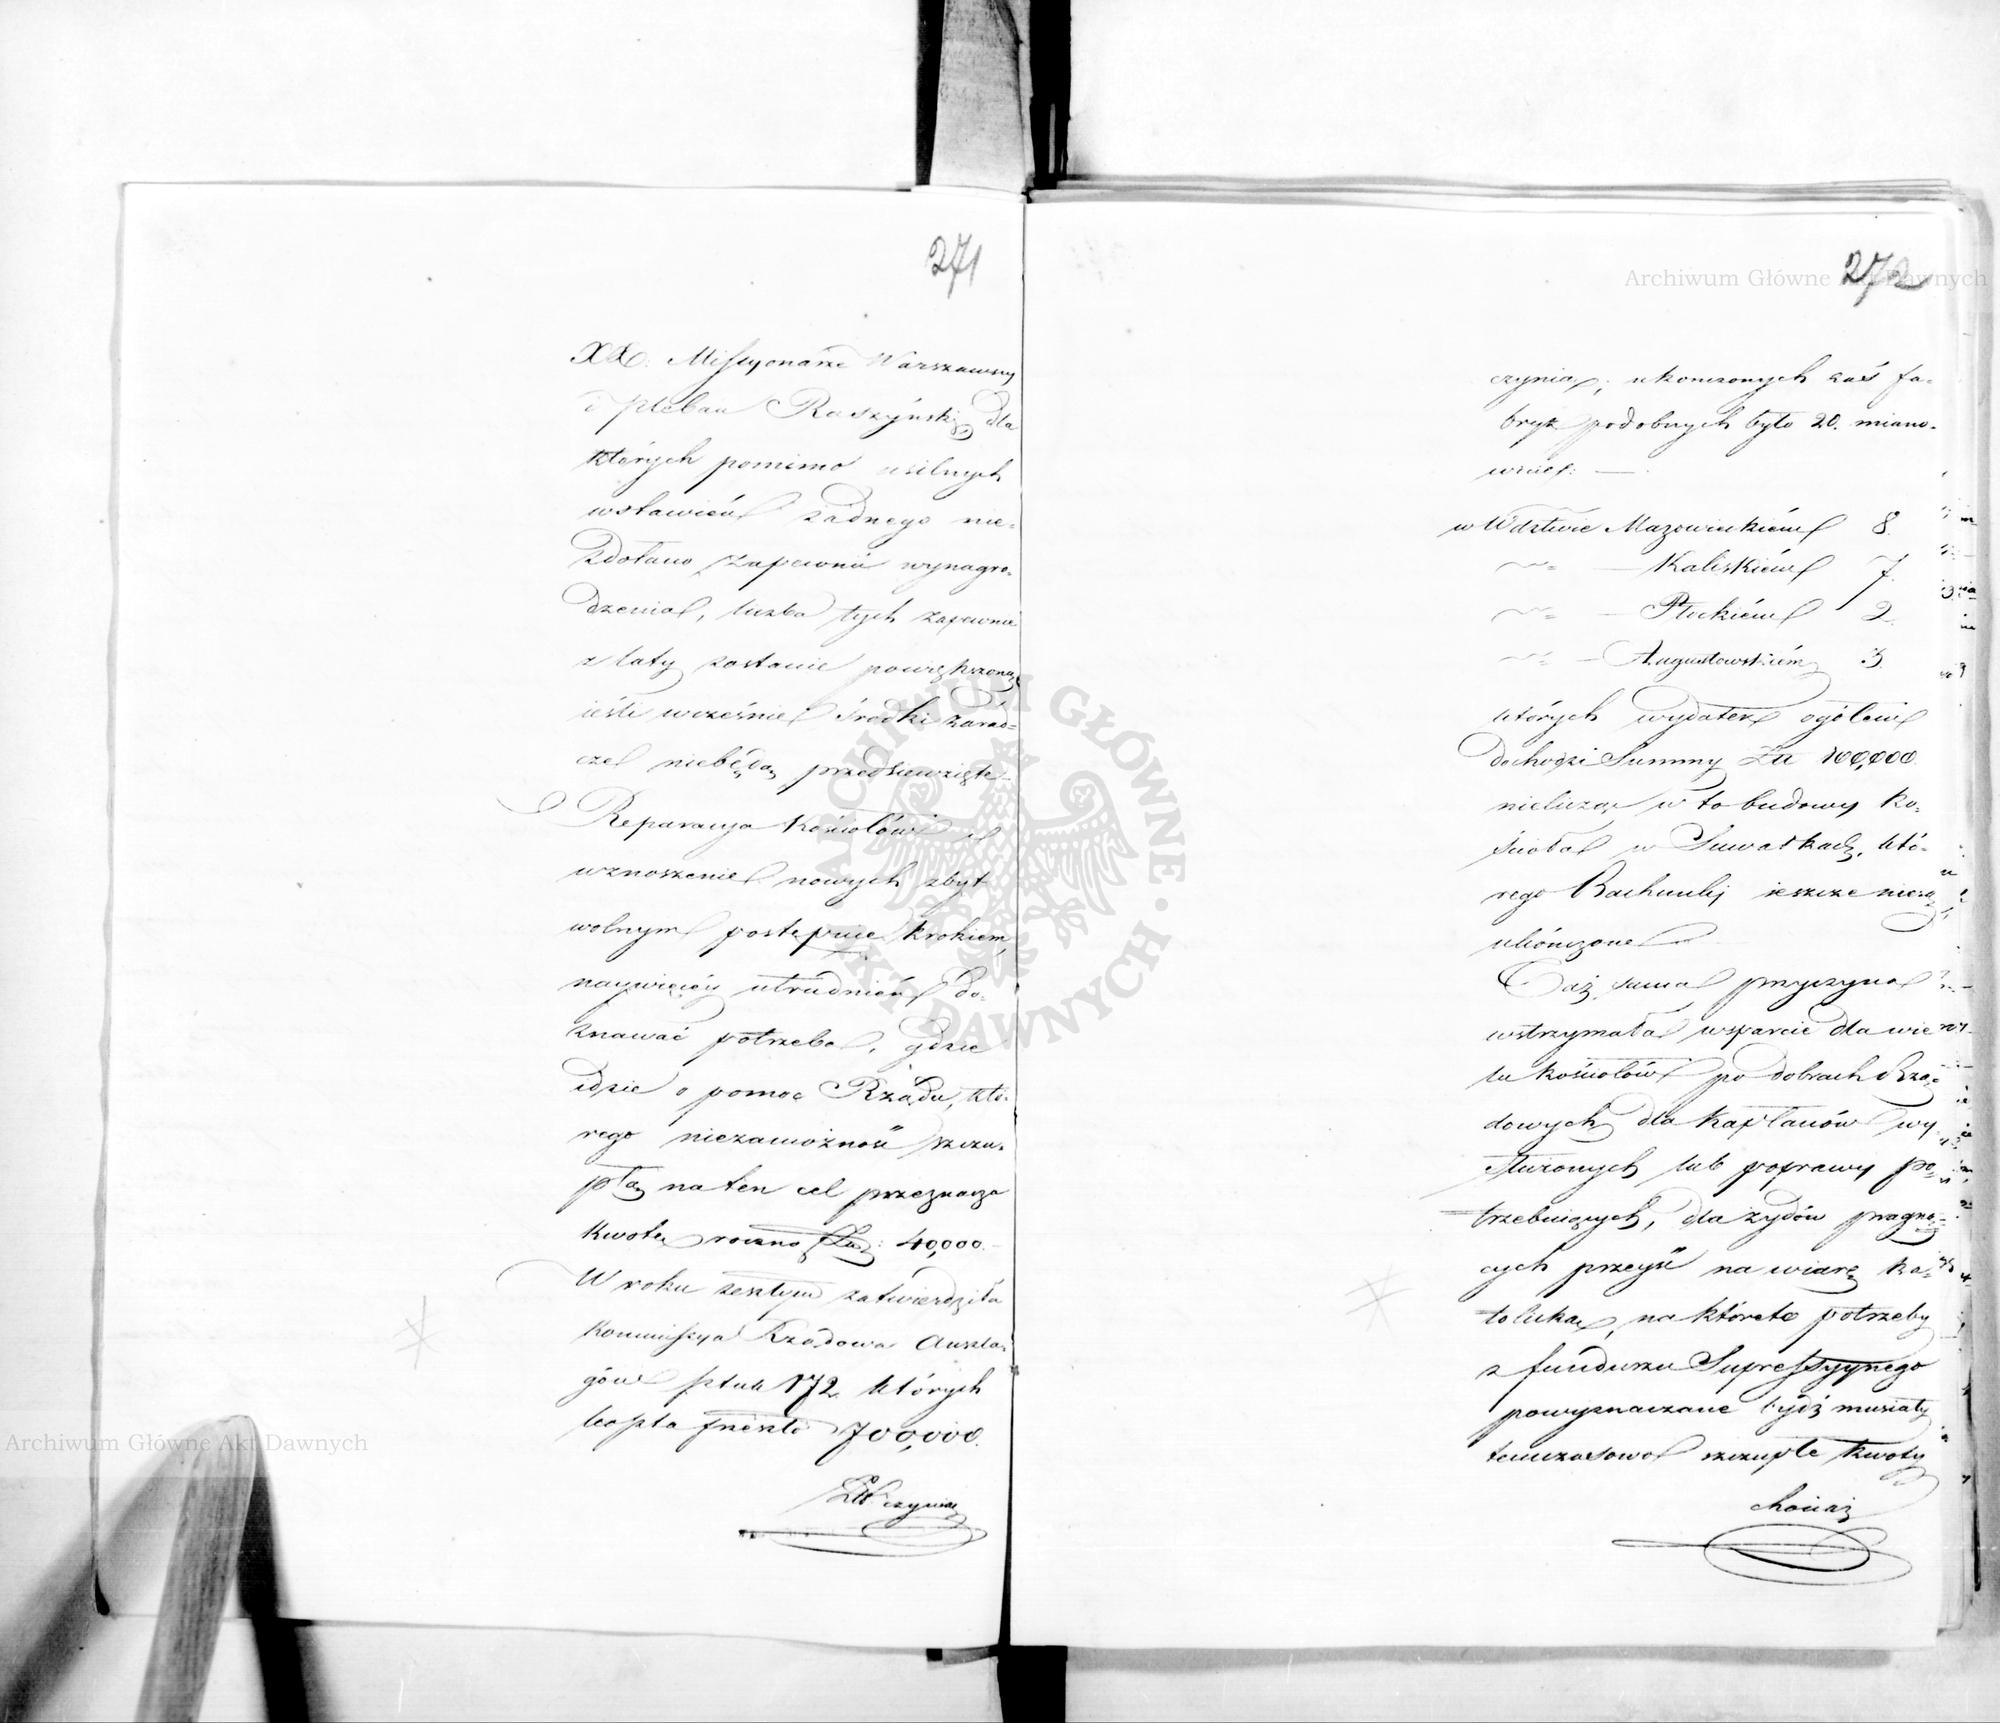 271
XX. Missyonarze Warszawscy
i pleban Raszyński dla
których pomimo usilnych
wstawień żadnego nie-
zdołano zapewnić wynagro-
dzenia, liczba tych zapewne
z laty zostanie powiększoną
ieśli wcześnie środki zarad-
cze niebędą przedsięwzięte
Reparacya kościołów i
wznoszenie nowych zbyt
wolnym postępuie krokiem,
naywięcéy utrudnień do-
znawać potrzeba, gdzie
idzie o pomoc Rządu, któ-
rego niezamożność szczu-
płą na ten cel przeznacza
kwotę roczną 40,000.
W roku zeszłym zatwierdziła
Kommissya Rządowa Anszla-
gów sztuk 172. których
koszta 700,000.
czynią
272
czynią; ukonczonych zaś fa-
bryk podobnych było 20. miano-
wicie: —
w Wdztwie Mazowieckiém 8
— Kaliskiém 7.
— Płockiém 2.
— Augustowskiém 3.
których wydatek ogółem
dochodzi Summy Zł 100,000
nielicząc w to budowy ko-
ścioła w Suwałkach, któ-
rego Rachunki ieszcze niesą
ukończone
Taż sama przyczyna
wstrzymała wsparcie dla wie
lu kościołów po dobrach Rzą-
dowych, dla kapłanów wy-
służonych lub poprawy po-
trzebuiących, dla żydów pragną-
cych przeyść na wiarę ka-
tolicką, na któreto potrzeby
z funduszu Supressyynego
powyznaczane bydź musiały
tymczasowo szczupłe kwoty
chociaż
Archiwum Główne Akt Dawnych
Archiwum Główne Akt Dawnych
ARCHIWUM GŁÓWNE AKT DAWNYCH